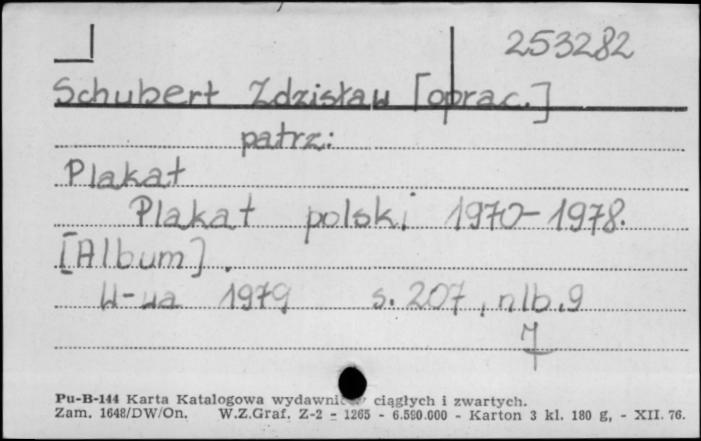 253282
Schubert Zdzisław [oprac.]
patrz:
Plakat
Plakat polski 1970-1978.
[Album].
W-wa 1979 s. 207, nlb. 9
Pu-B-144 Karta Katalogowa ciągłych i zwartych.
Zam. 1648/DW/On. W.Z.Graf. Z-2 - 1265 - 6.590.000 - Karton 3 kl. 180 g, - XII. 76.